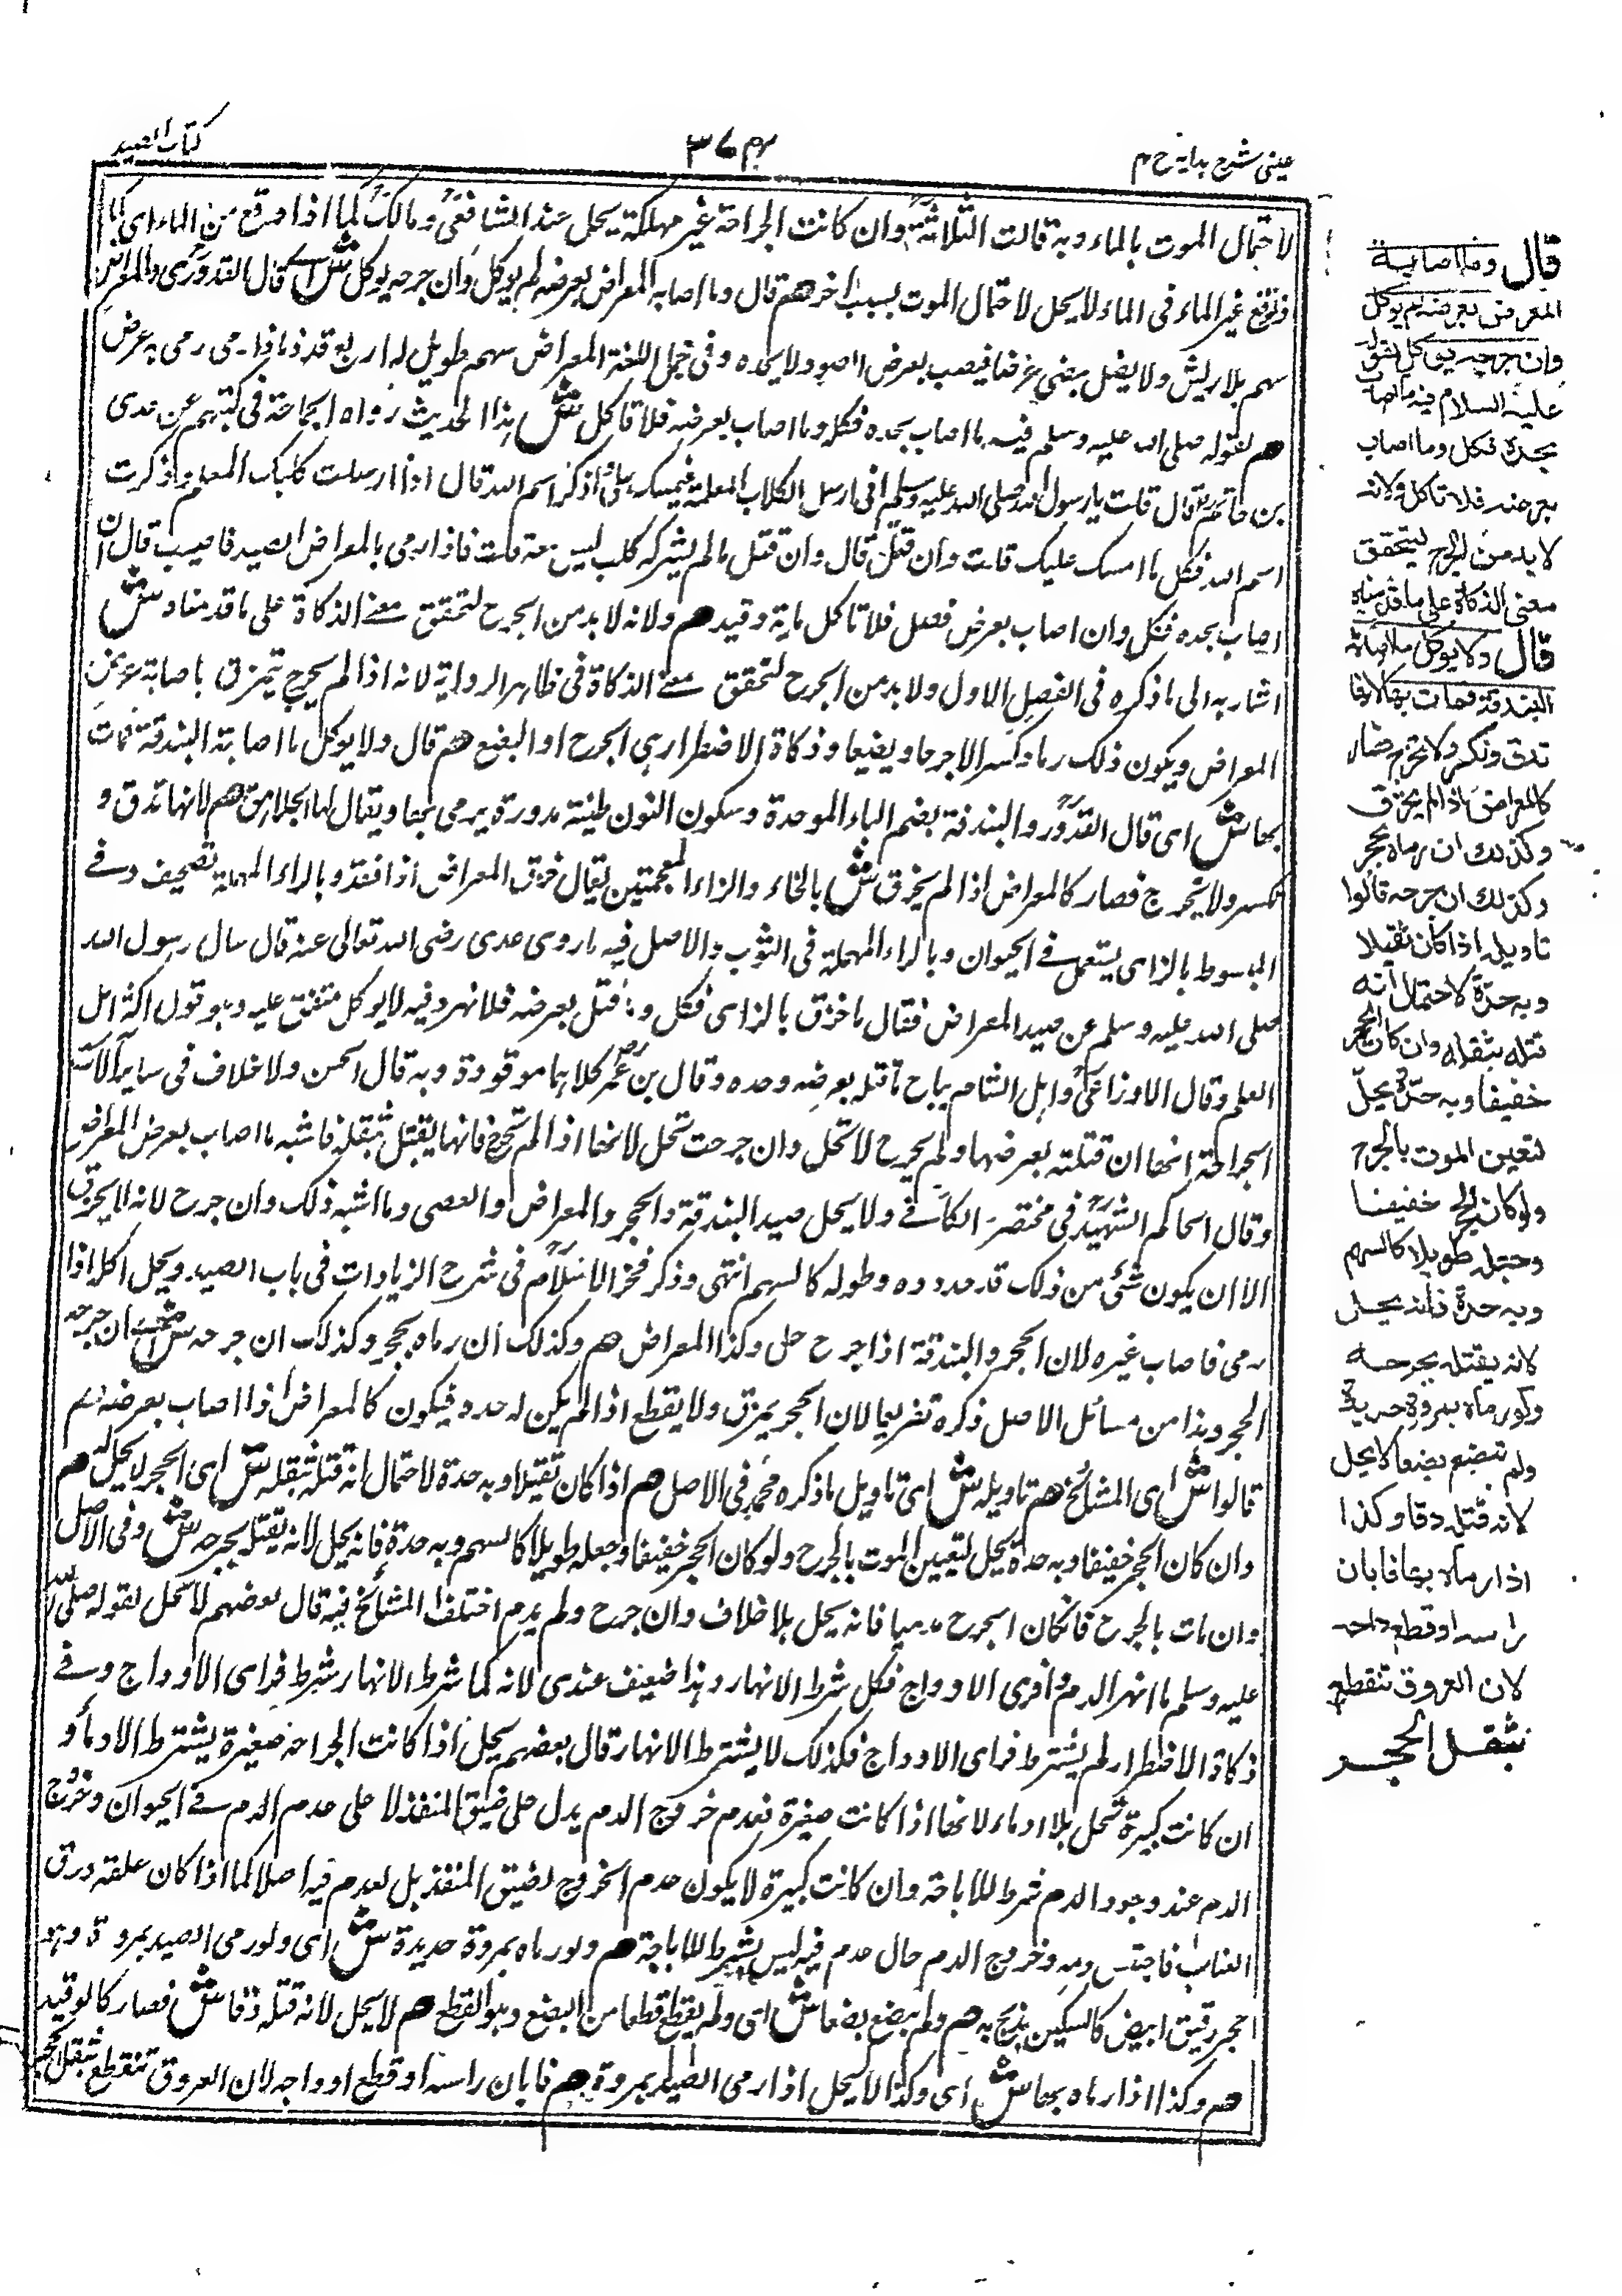 عینی شرح ہدایہ ج م
کتاب الصید
لاحتمال الموت بالماء وبه قالت الثلاثة وان كانت الجراحة غير مهلكة يحل عند الشافعى ومالك كما اذا وقع من الماء اى
فوقع غير الماء فى الماء لا يحل لاحتمال الموت بسبب اخر هم قال وما اصابه المعراض بعرضه لم يوكل وان جرحه يوكل ش اى قال القدورى والمعراض
سهم بلا ريش ولا يصل يمضى عرضا فيصيب بعرض العود لا بحده وفى مجمل اللغة المعراض سهم طويل له اربع قذذ فاذا رمى به عرض
هم لقوله صلى الله عليه وسلم فيه ما اصاب بحده فكل وما اصاب بعرضه فلا تاكل ش هذا الحديث رواه الجماعة فى كتبهم عن عدى
بن حاتم قال قلت يا رسول الله صلى الله عليه وسلم انى ارسل الكلاب المعلمة فيمسكن على واذكر اسم الله قال اذا ارسلت كلبك المعلم وذكرت
اسم الله فكل ما امسك عليك قلت وان قتلن قال وان قتلن ما لم يشركه كلب ليس معه قلت فاذا رمى بالمعراض الصيد فاصيب قال ان
اصاب بحده فكل وان اصاب بعرض فقتل فلا تاكل فانه وقيد هم ولانه لا بد من الجرح لتحقق معنے الذكاة على ما قدمناه ش
اشار به الى ما ذكره فى الفصل الاول ولا بد من الجرح لتحقق معنے الذكاة فى ظاهر الرواية لانه اذا لم يجرح تمزق باصابة عرض
المعراض ويكون ذلك رضا وكسرا لا جرحا وبضعا وذكاة الاضطرار هى الجرح او البضع هم قال ولا يوكل ما اصابته البندقة فمات
بها ش اى قال القدورى والبندقة بضم الباء الموحدة وسكون النون طينة مدورة يرمى بها ويقال لها الجلاهق هم لانها تدق و
تكسر ولا تجرح فصار كالمعراض اذا لم يخزق ش بالخاء والزاء المعجمتين يقال خزق المعراض اذا نفذ وبالراء المهملة تصحيف وفے
المبسوط بالزاى يستعمل فے الحيوان وبالراء المهملة فى الثوب والاصل فيه ما روى عدى رضى الله تعالى عنه قال سال رسول الله
صلى الله عليه وسلم عن صيد المعراض فقال ما خزق بالزاى فكل وما قتل بعرضه فلا نهر وفيه لا يوكل متفق عليه وهو قول اكثر اهل
العلم وقال الاوزاعى واهل الشام يباح ما قتله بعرضه وحده وقال بن عمر كلاهما موقوذة وبه قال الحسن ولا خلاف فى ساير آلات
الجراحة انها ان قتلته بعرضها ولم يجرح لا تحل وان جرحت تحل لانها اذا لم تجرح فانها يقتل بثقله فاشبه ما اصاب بعرض المعراض
وقال الحاكم الشهيد فى مختصر الكافے ولا يحل صيد البندقة والحجر والمعراض والعصى وما اشبه ذلك وان جرح لانه لا يخزق
الا ان يكون شئ من ذلك قد حدده وطوله كالسهم انتهى وذكر فخر الاسلام فى شرح الزيادات فى باب الصيد ويحل اكل اذا
رمى فاصاب غيره لان الحجر والبندقة اذا جرح حل وكذا المعراض هم وكذلك ان رماه بحجر وكذلك ان جرحه ش اى ان جرحه
الحجر وهذا من مسائل الاصل ذكره تفريعا لان الحجر يمزق ولا يقطع اذا لم يكن له حد فيكون كالمعراض اذا اصاب بعرضه هم
قالوا ش اى المشائخ هم تاويله ش اى تاويل ما ذكره محمد فى الاصل هم اذا كان ثقيلا وبه حدة لاحتمال انه قتله بثقله ش اى الحجر لا يحل هم
وان كان الحجر خفيفا وبه حدة يحل لتعيين الموت بالجرح ولو كان الحجر خفيفا وجعله طويلا كالسهم وبه حدة فانه يحل لانه يقتل بجرحه ش وفى الاصل
وان مات بالجرح فان كان الجرح مدميا فانه يحل بلا خلاف وان جرح ولم يدم اختلف المشائخ فيه قال بعضهم لا تحل لقوله صلى الله
عليه وسلم ما انهر الدم وافرى الاوداج فكل شرط الانهار وهذا ضعيف عندى لانه كما شرط الانهار شرط فراى الاوداج وفے
ذكاة الاضطرار لم يشترط فراى الاوداج فكذلك لا يشترط الانهار قال بعضهم يحل اذا كانت الجراحة صغيرة يشترط الادماء و
ان كانت كبيرة تحل بلا ادماء لانها اذا كانت صغيرة فعدم خروج الدم يدل على ضيق المنفذ لا على عدم الدم فے الحيوان وخروج
الدم عند وجود الدم شرط للاباحة وان كانت كبيرة لا يكون عدم الخروج لضيق المنفذ بل لعدم فيه اصلا كما اذا كان علفه ورق
العناب فاحتبس دمه وخروج الدم حال عدم فيه ليس بشرط للاباحة هم ولو رماه بمروة حديدة ش اى ولو رمى الصيد بمروة وهو
حجر رقيق ابيض كالسكين يذبح به هم ولم يبضع بضعا ش اى ولم يقطع قطعا من البضع وهو القطع هم لا يحل لانه قتله دقا ش فصار كالوقيد
هم وكذا اذا رماه بها ش اى وكذا لا يحل اذا رمى الصيد بمروة هم فابان راسه او قطع اوداجه لان العروق تنقطع بثقل الحجر
قال وما اصابه
المعراض بعرضه لم يوكل
وان جرحه يوكل لقوله
عليه السلام فيه ما اصاب
بحده فكل وما اصاب
بعرضه فلا تاكل ولانه
لا بد من الجرح ليتحقق
معنى الذكاة على ما قدمناه
قال ولا يوكل ما اصابته
البندقة فمات بها لانها
تدق وتكسر ولا تجرح فصار
كالمعراض اذا لم يخزق
وكذلك ان رماه بحجر
وكذلك ان جرحه قالوا
تاويله اذا كان ثقيلا
وبه حدّة لاحتمال انه
قتله بثقله وان كان الحجر
خفيفا وبه حدّة يحلّ
لتعين الموت بالجرح
ولو كان الحجر خفيفا
وجعله طويلا كالسهم
وبه حدة فانه يحل
لانه يقتله بجرحه
ولو رماه بمروة حديدة
ولم تبضع بضعا لا يحل
لانه قتله دقا وكذا
اذا رماه بها فابان
راسه او قطع اوداجه
لان العروق تنقطع
بثقل الحجر